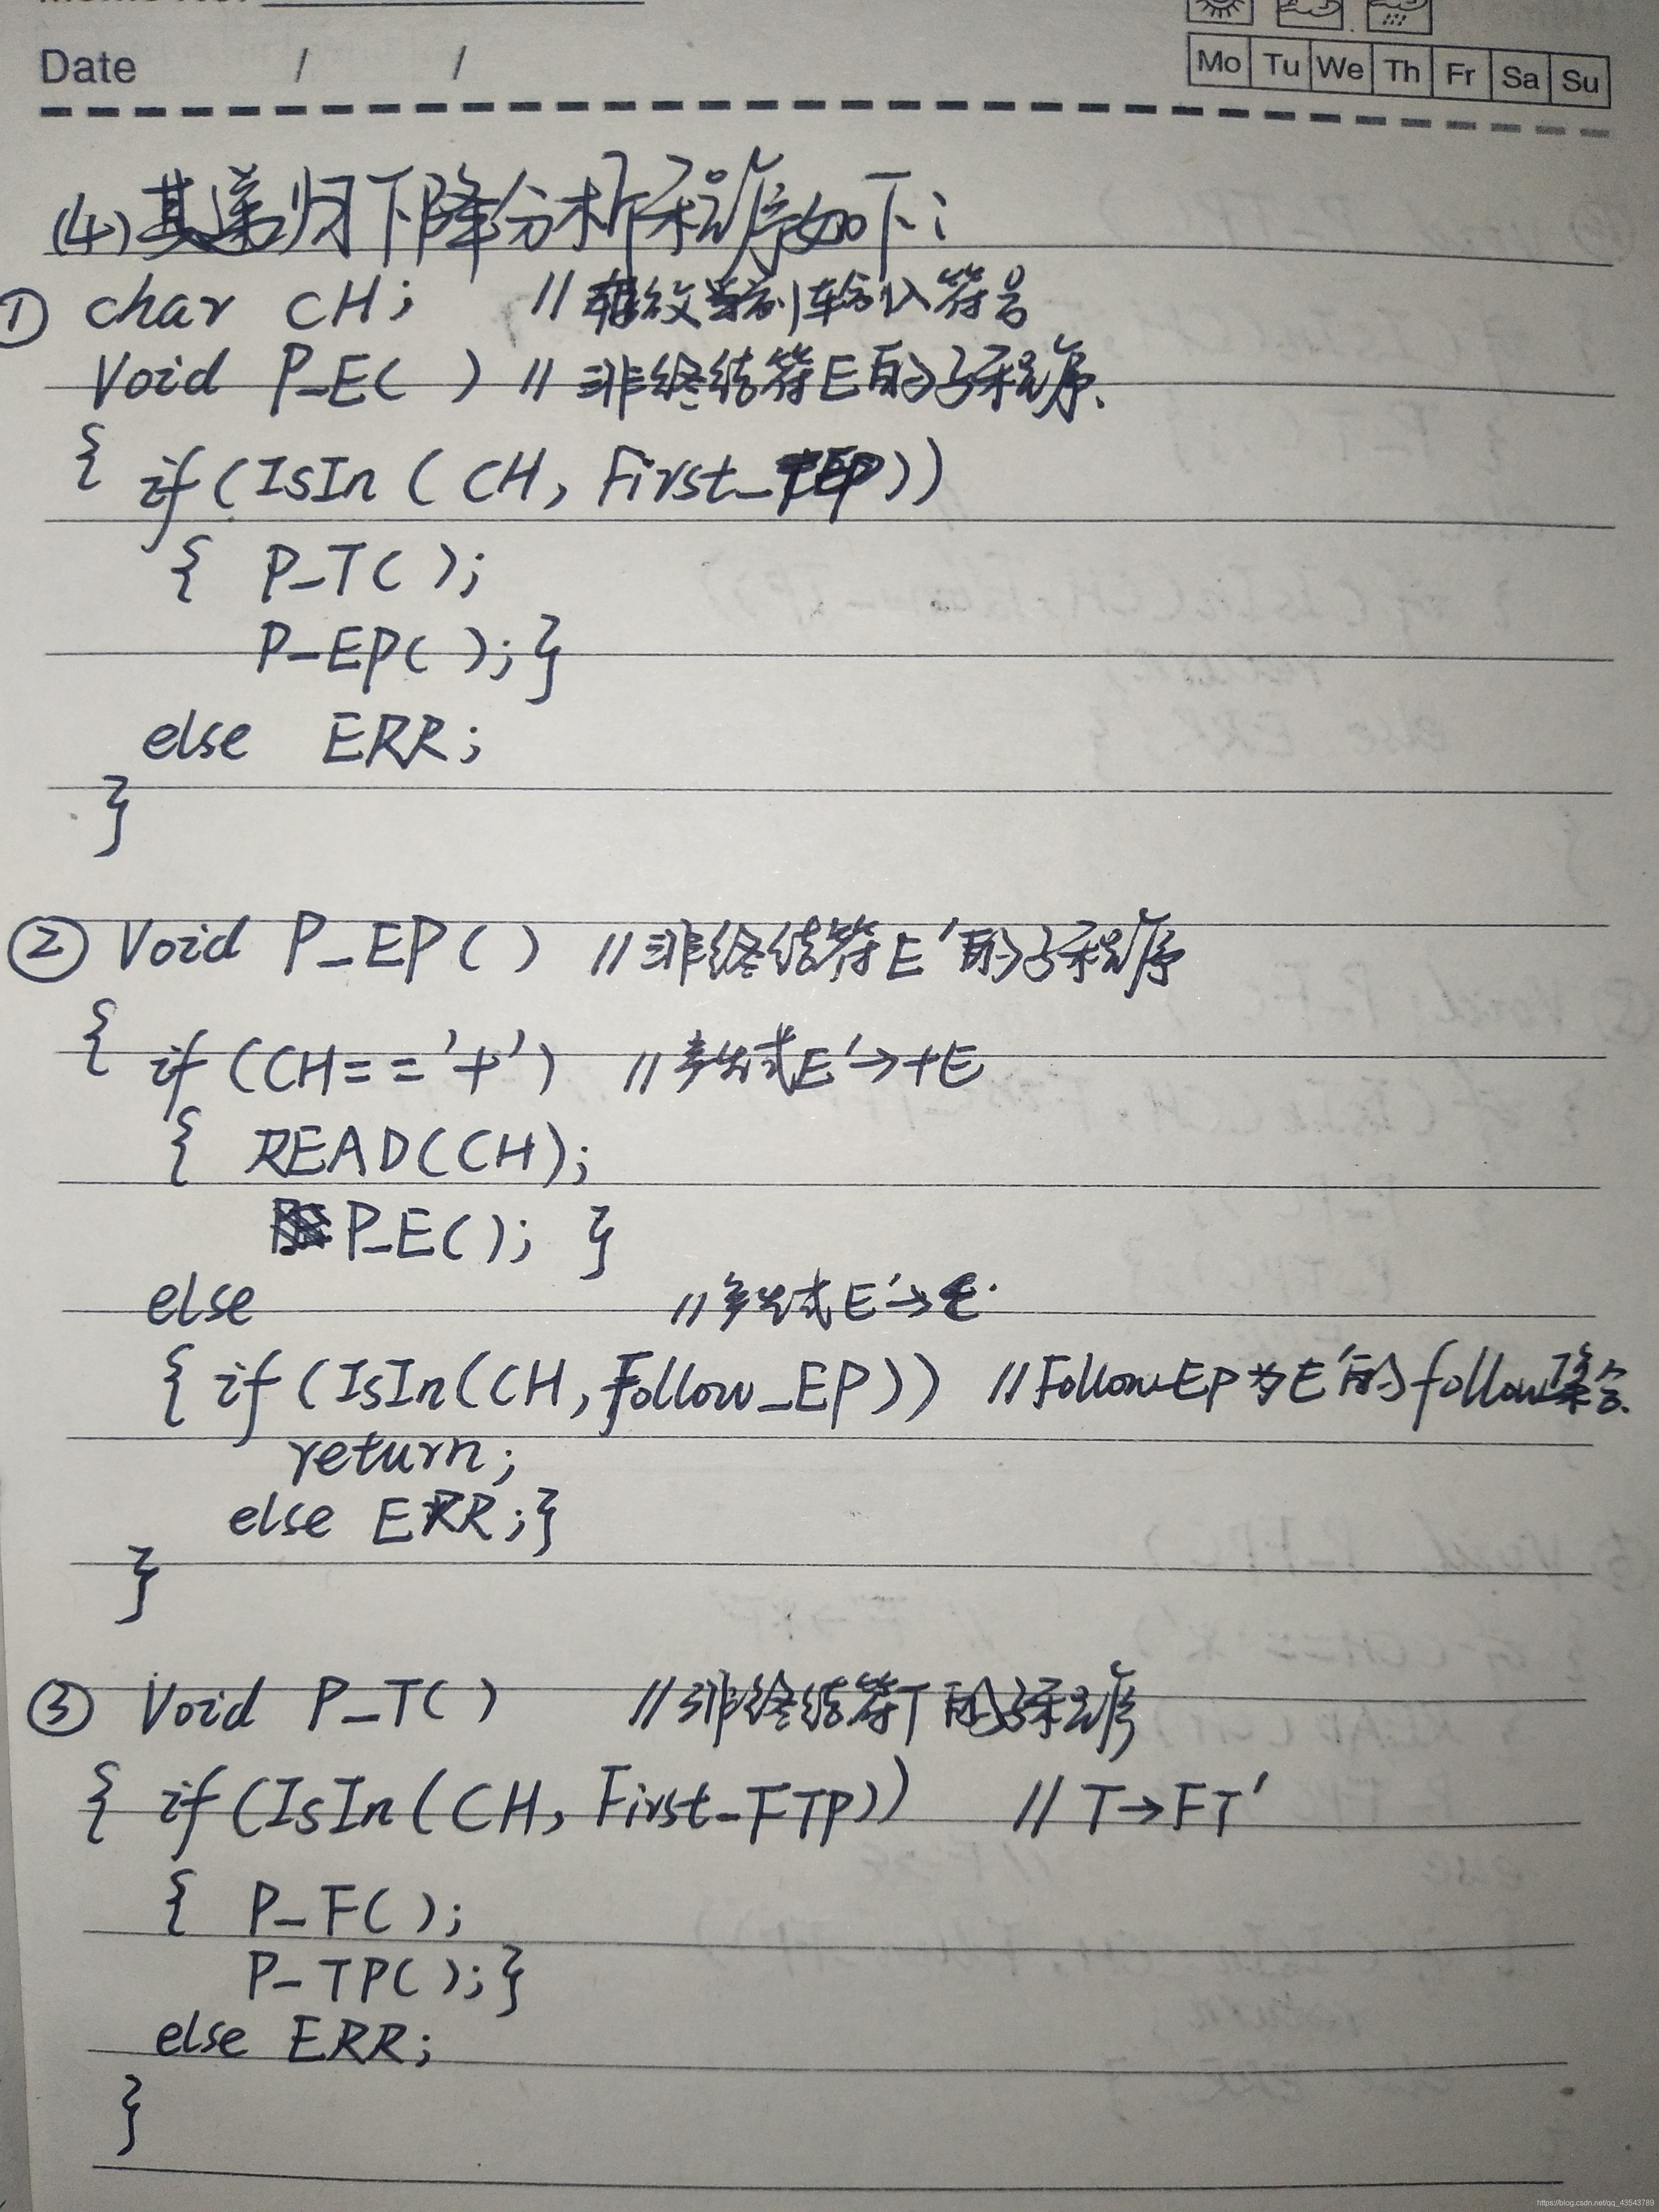 Date / /
Mo Tu We Th Fr Sa Su
(4)其递归下降分析程序如下:
① char CH; //存放当前输入符号
Void P_E( ) //非终结符E的子程序.
{ if(IsIn(CH, First_TEP))
{ P_T( );
P_EP( );}
else ERR;
}
② Void P_EP( ) //非终结符E'的子程序
{ if(CH=='+') //产生式E'→+E
{ READ(CH);
P_E( ); }
else //产生式E'→ε.
{ if(IsIn(CH,Follow_EP)) //Follow_EP为E'的follow集合.
return;
else ERR;}
}
③ Void P_T( ) //非终结符T的子程序
{ if(IsIn(CH, First_FTP)) //T→FT'
{ P_F( );
P_TP( );}
else ERR;
}
https://blog.csdn.net/qq_43543789